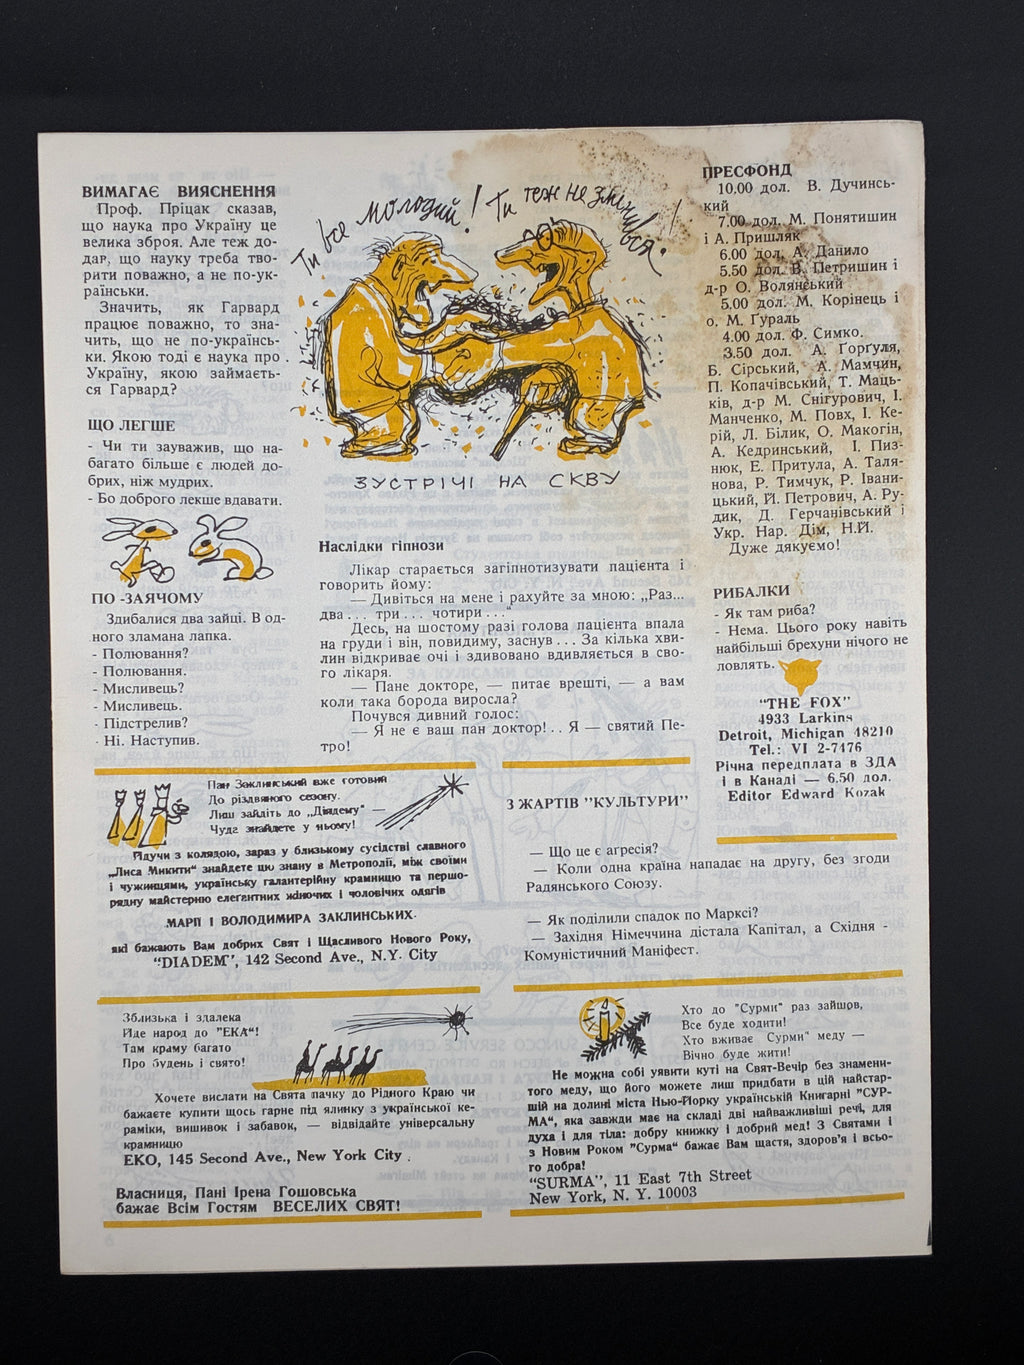 ВИМАГАЄ ВИЯСНЕННЯ
Проф. Пріцак сказав,
що наука про Україну це
велика зброя. Але теж до-
дар, що науку треба тво-
рити поважно, а не по-ук-
раїнськи.
Значить, як Гарвард
працює поважно, то зна-
чить, що не по-українсь-
ки. Якою тоді є наука про
Україну, якою займаєть-
ся Гарвард?
ЩО ЛЕГШЕ
- Чи ти зауважив, що на-
багато більше є людей до-
брих, ніж мудрих.
- Бо доброго лекше вдавати.
ПО -ЗАЯЧОМУ
Здибалися два зайці. В од-
ного зламана лапка.
- Полювання?
- Полювання.
- Мисливець?
- Мисливець.
- Підстрелив?
- Ні. Наступив.
Ти все молодий! Ти теж не змінився!
ЗУСТРІЧІ НА СКВУ
Наслідки гіпнози
Лікар старається загіпнотизувати пацієнта і
говорить йому:
— Дивіться на мене і рахуйте за мною: „Раз...
два ... три ... чотири ..."
Десь, на шостому разі голова пацієнта впала
на груди і він, повидиму, заснув ... За кілька хви-
лин відкриває очі і здивовано вдивляється в сво-
го лікаря.
— Пане докторе, — питає врешті, — а вам
коли така борода виросла?
Почувся дивний голос:
— Я не є ваш пан доктор!.. Я — святий Пе-
тро!
ПРЕСФОНД
10.00 дол. В. Дучинсь-
кий
7.00 дол. М. Понятишин
і А. Пришляк
6.00 дол. А. Данило
5.50 дол. В. Петришин і
д-р О. Волянський
5.00 дол. М. Корінець і
о. М. Ґураль
4.00 дол. Ф. Симко.
3.50 дол. А. Ґорґуля,
Б. Сірський, А. Мамчин,
П. Копачівський, Т. Маць-
ків, д-р М. Снігурович, І.
Манченко, М. Повх, І. Ке-
рій, Л. Білик, О. Макогін,
А. Кедринський, І. Пиз-
нюк, Е. Притула, А. Таля-
нова, Р. Тимчук, Р. Івани-
цький, Й. Петрович, А. Ру-
дик, Д. Герчанівський і
Укр. Нар. Дім, Н.Й.
Дуже дякуємо!
РИБАЛКИ
- Як там риба?
- Нема. Цього року навіть
найбільші брехуни нічого не
ловлять.
"THE FOX"
4933 Larkins
Detroit, Michigan 48210
Tel.: VI 2-7476
Річна передплата в ЗДА
і в Канаді — 6.50 дол.
Editor Edward Kozak
Пан Заклинський вже готовий
До різдвяного сезону.
Лиш зайдіть до „Діядему" —
Чуда знайдете у ньому!
Йдучи з колядою, зараз у близькому сусідстві славного
„Лиса Микити" знайдете цю знану в Метрополії, між своїми
і чужинцями, українську галантерійну крамницю та першо-
рядну майстерню елегентних жіночих і чоловічих одягів
МАРІЇ І ВОЛОДИМИРА ЗАКЛИНСЬКИХ
які бажають Вам добрих Свят і Щасливого Нового Року,
"DIADEM", 142 Second Ave., N.Y. City
З ЖАРТІВ "КУЛЬТУРИ"
— Що це є агресія?
— Коли одна країна нападає на другу, без згоди
Радянського Союзу.
— Як поділили спадок по Марксі?
— Західня Німеччина дістала Капітал, а Східня -
Комуністичний Маніфест.
Зблизька і здалека
Йде народ до "ЕКА"!
Там краму багато
Про будень і свято!
Хочете вислати на Свята пачку до Рідного Краю чи
бажаєте купити щось гарне під ялинку з української ке-
раміки, вишивок і забавок, — відвідайте універсальну
крамницю
ЕКО, 145 Second Ave., New York City .
Власниця, Пані Ірена Гошовська
бажає Всім Гостям ВЕСЕЛИХ СВЯТ!
Хто до "Сурми" раз зайшов,
Все буде ходити!
Хто вживає "Сурми" меду —
Вічно буде жити!
Не можна собі уявити куті на Свят-Вечір без знамени-
того меду, що його можете лиш придбати в цій найстар-
шій на долині міста Нью-Йорку українській Книгарні "СУР-
МА", яка завжди має на складі дві найважливіші речі, для
духа і для тіла: добру книжку і добрий мед! З Святами і
з Новим Роком "Сурма" бажає Вам щастя, здоров'я і всьо-
го добра!
"SURMA", 11 East 7th Street
New York, N. Y. 10003